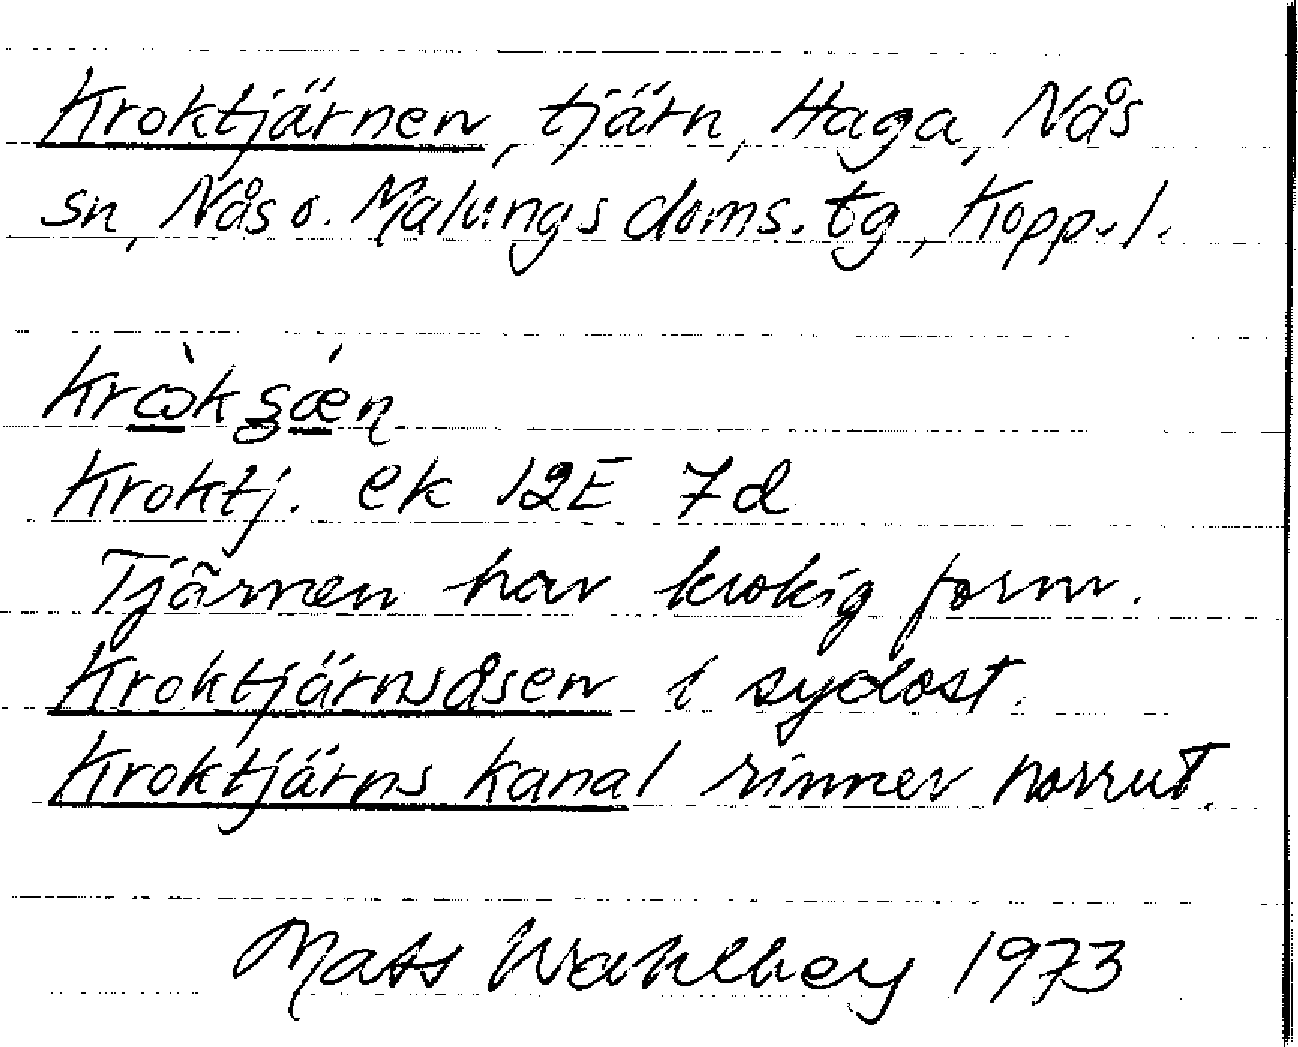 Kroktjärnen, tjärn, Haga, Nås
sn, Nås o. Malungs doms. tg, Kopp.l.
Kroktj. ek 12E 7d
Tjärnen har krokig form.
Kroktjärnsåsen i sydost.
Kroktjärns kanal rinner norrut.
Mats Wahlberg 1973